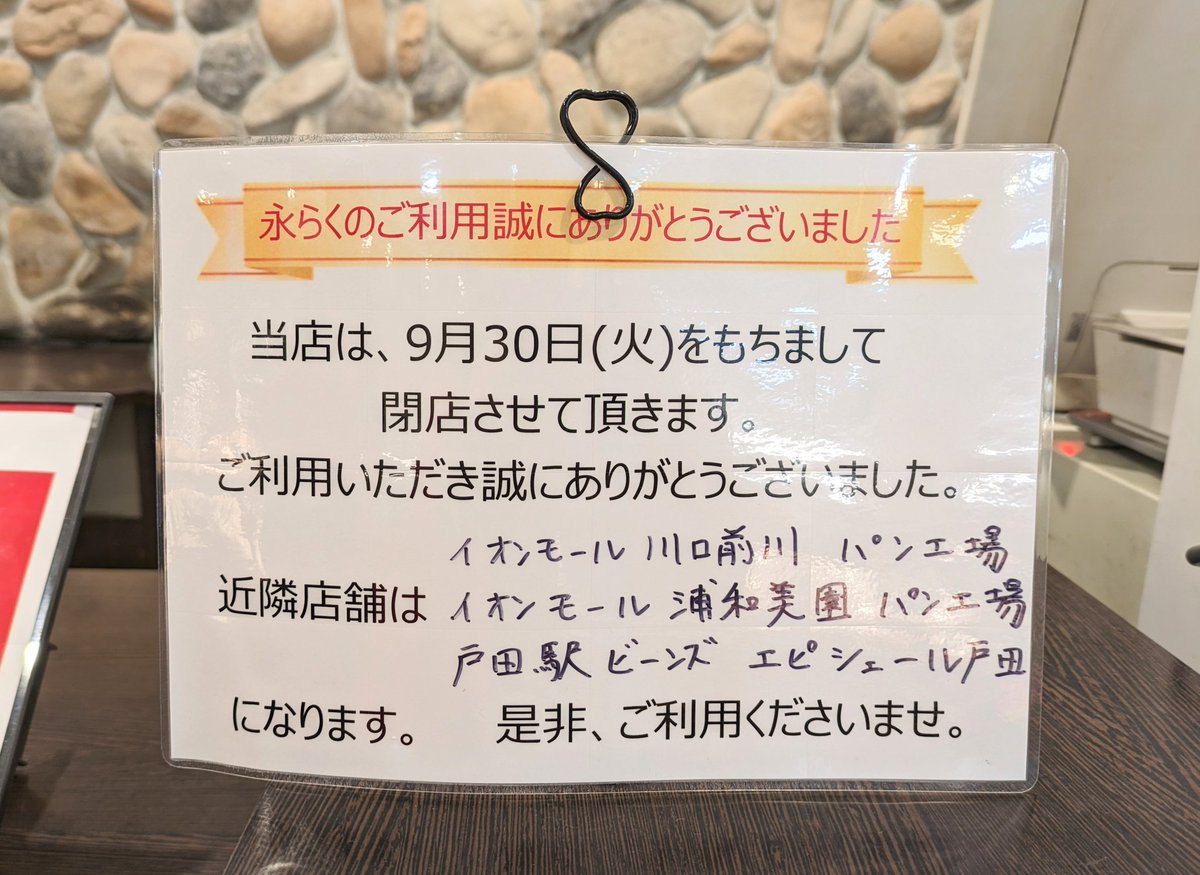 永らくのご利用誠にありがとうございました
当店は、9月30日(火)をもちまして
閉店させて頂きます。
ご利用いただき誠にありがとうございました。
近隣店舗は
イオンモール 川口前川 パン工場
イオンモール 浦和美園 パン工場
戸田駅 ビーンズ エピシェール戸田
になります。 是非、ご利用くださいませ。